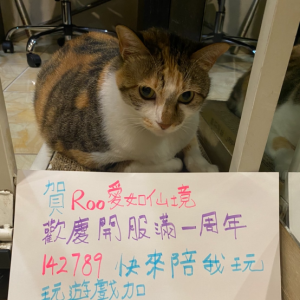 賀Roo愛如仙境
歡慶開服滿一周年
142789 快來陪我玩
玩遊戲加